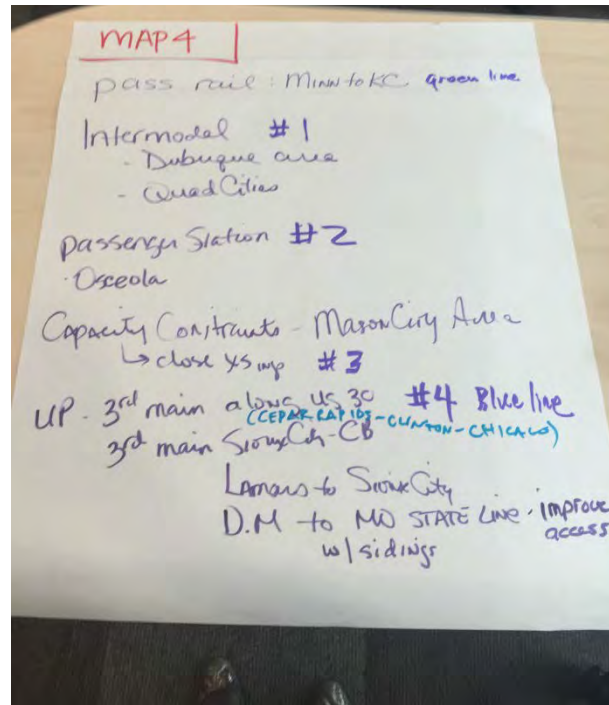 MAP4
pass rail: MINN to KC green line
Intermodal #1
- Dubuque area
- Quad Cities
passenger Station #2
- Osceola
Capacity Constraints - Mason City Area
↳ close xsing #3
UP - 3rd main along US 30 #4 Blue line
(CEPAR RAPIDS - CLINTON - CHICAGO)
3rd main Sioux City - CB
Lamars to Sioux City
D.M to MO STATE LINE - improve access
w/ sidings